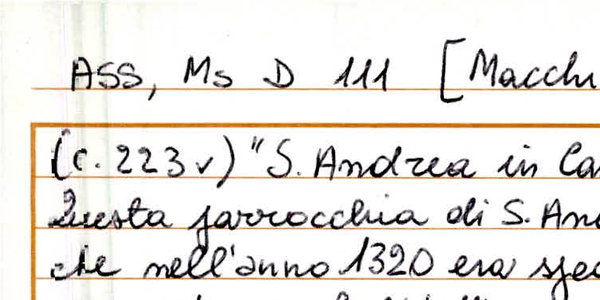 ASS, Ms D 111 [Macchi
(c. 223v) "S. Andrea in Ca
Questa parrocchia di S. And
che nell'anno 1320 era sped